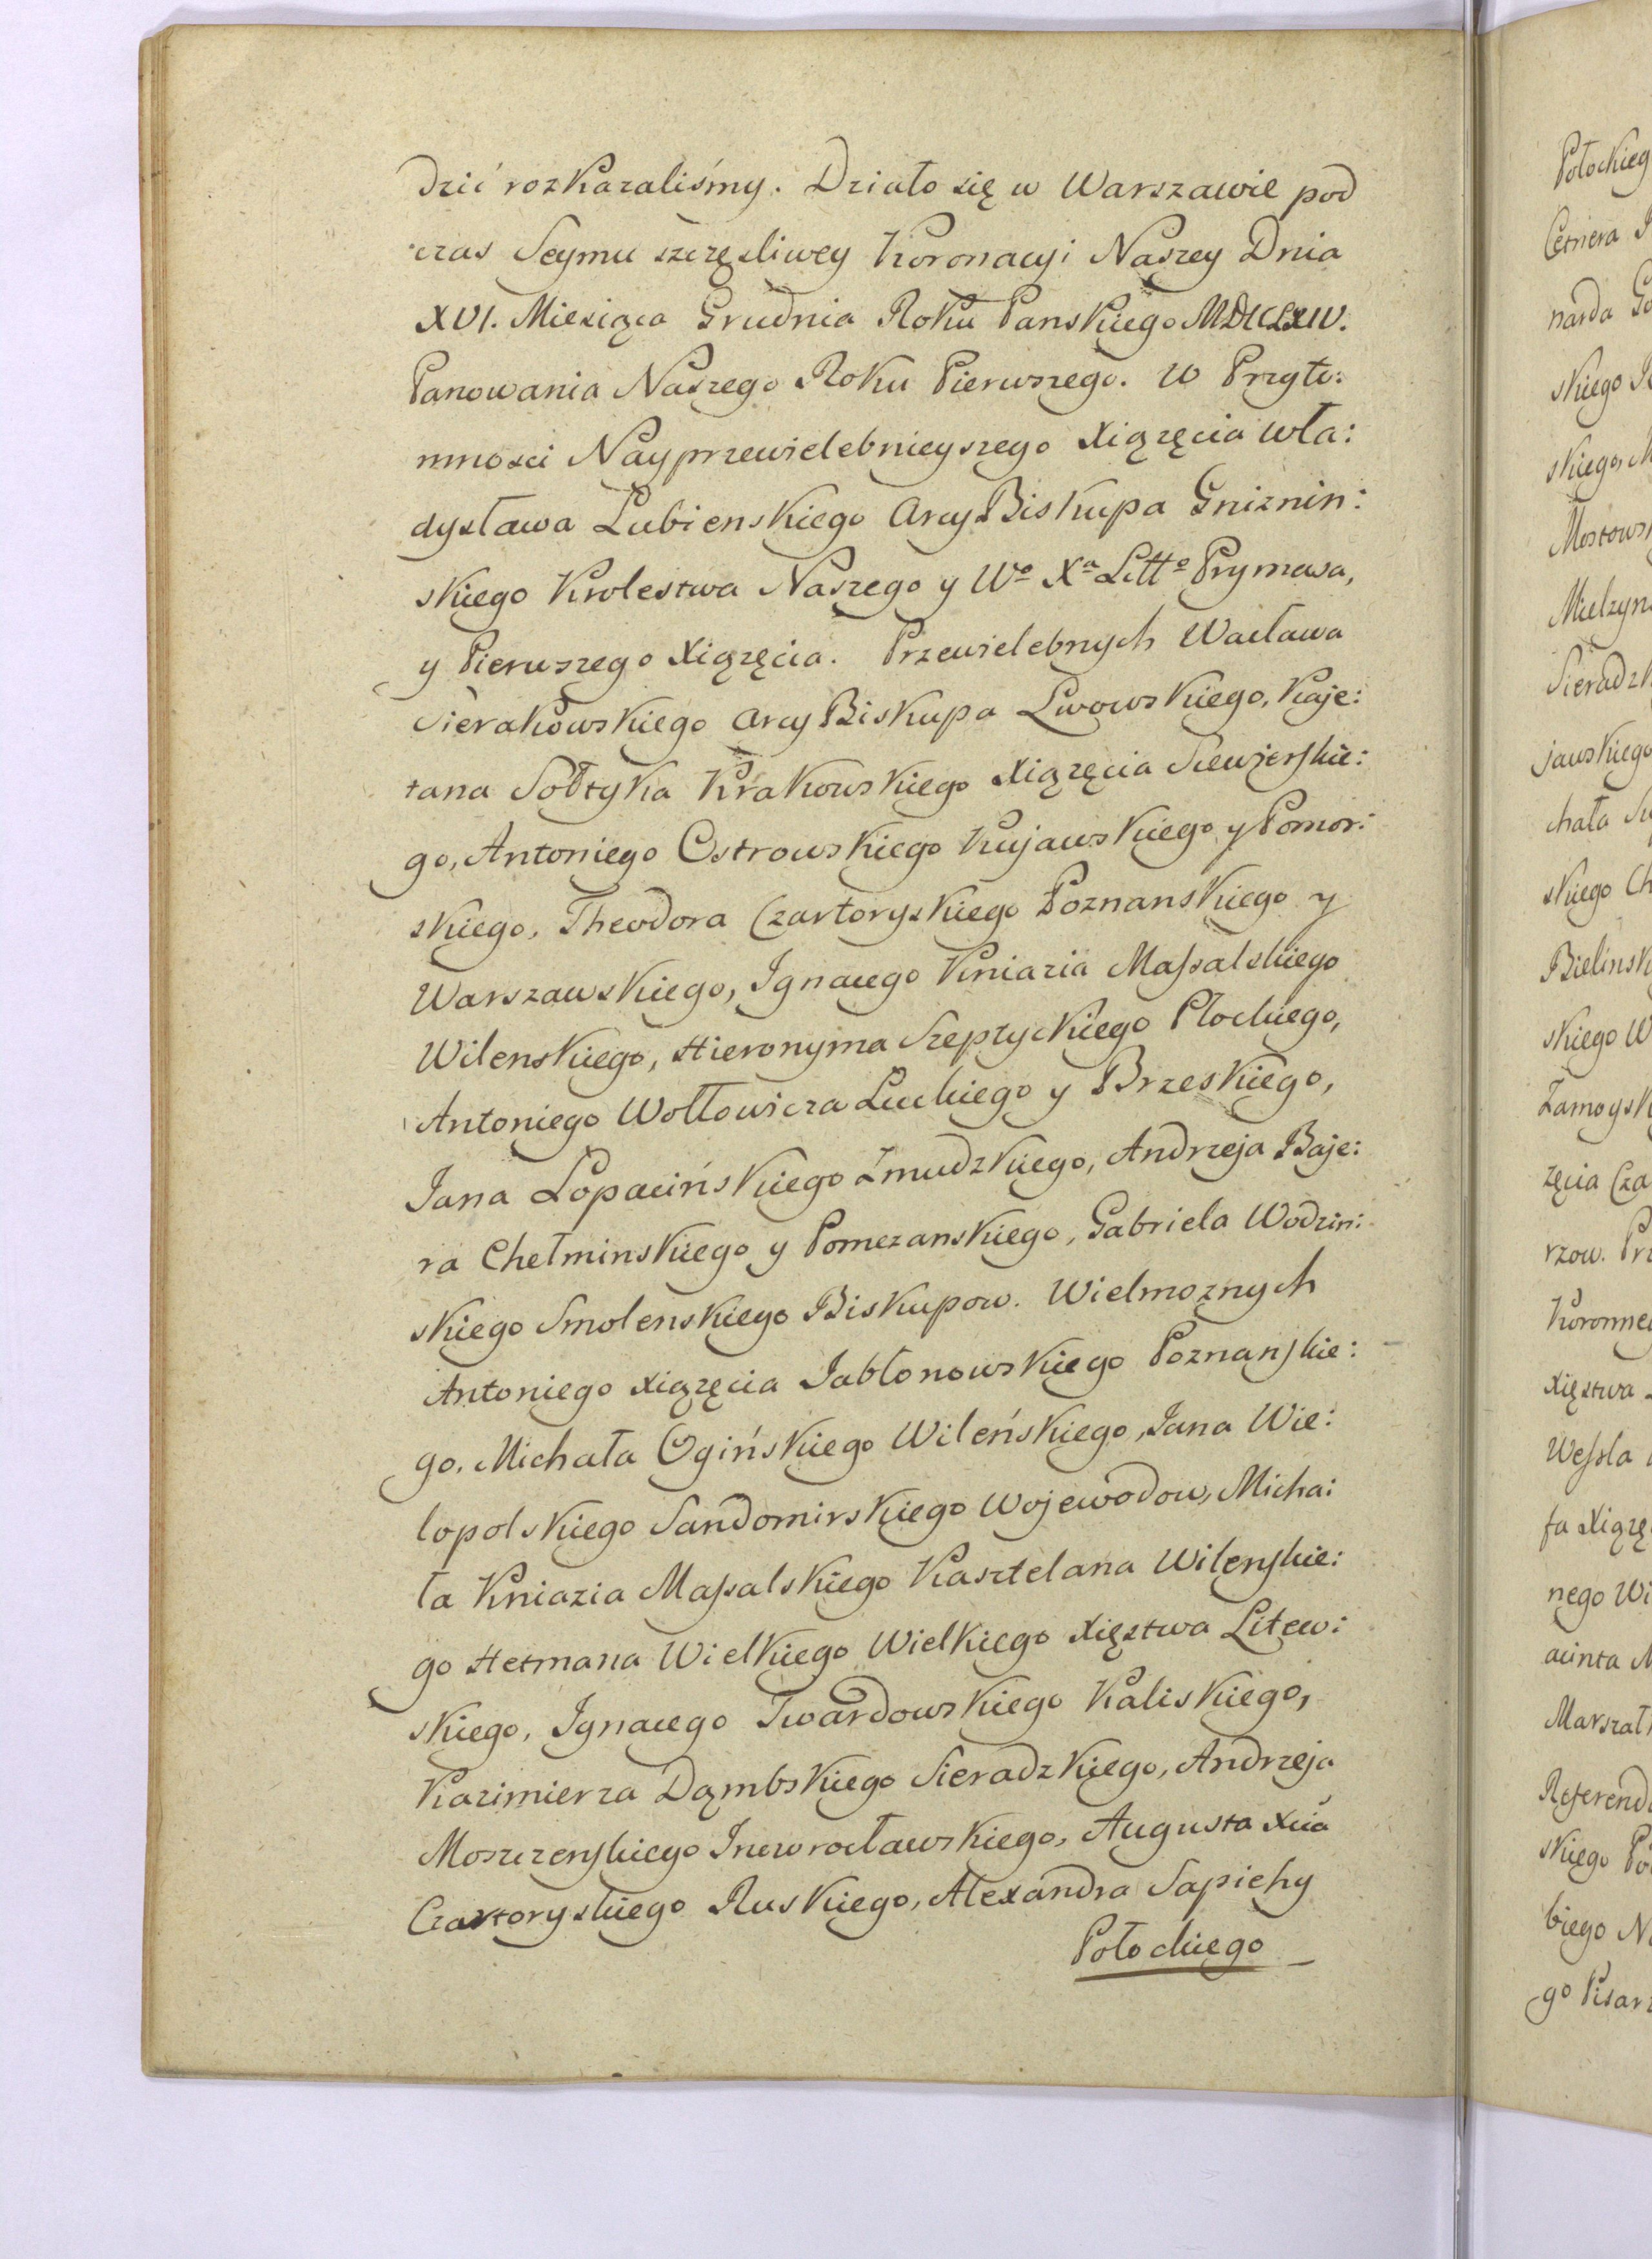 dzić rozkazaliśmy. Działo się w Warszawie pod
czas Seymu szczęsliwey Koronacyi Naszey Dnia
XVI. Miesiąca Grudnia Roku Panskiego MDCCLXIV.
Panowania Naszego Roku Pierwszego. W Przyto:
mnosci Nayprzewielebnieyszego Xiążęcia Wła:
dysława Lubienskiego ArcyBiskupa Gniznin:
skiego Krolestwa Naszego y Wo Xa Litto Prymasa,
y Pierwszego Xiążęcia. Przewielebnych Wacława
Sierakowskiego ArcyBiskupa Lwowskiego, Kaje:
tana Sołtyka Krakowskiego Xiążęcia Siewierskie:
go, Antoniego Ostrowskiego Kujawskiego y Pomor:
skiego, Theodora Czartoryskiego Poznanskiego y
Warszawskiego, Ignacego Kniazia Massalskiego
Wilenskiego, Hieronyma Szeptyckiego Płockiego,
Antoniego Wołłowicza Łuckiego y Brzeskiego,
Jana Łopacińskiego Żmudzkiego, Andrzeja Baje:
ra Chełminskiego y Pomezanskiego, Gabriela Wodzin:
skiego Smolenskiego Biskupow. Wielmożnych
Antoniego Xiążęcia Jabłonowskiego Poznanskie:
go, Michała Ogińskiego Wileńskiego, Jana Wie:
lopolskiego Sandomirskiego Wojewodow, Micha:
ła Kniazia Massalskiego Kasztelana Wilenskie:
go Hetmana Wielkiego Wielkiego Xięstwa Litew:
skiego, Ignacego Twardowskiego Kaliskiego,
Kazimierza Dąmbskiego Sieradzkiego, Andrzeja
Moszczenskiego Inowrocławskiego, Augusta Xcia
Czartoryskiego Ruskiego, Alexandra Sapiehy
Połockiego
Połockieg
Cetnera
narda
skiego
skiego,
Mostows
Mielzyn
Sieradzk
jawskiego
chała
skiego Ch
Bielinsk
skiego W
Zamoysk
żęcia Cza
rzow. Prz
Koronne
Xięstwa
Wessla
ta Xiążę
nego Wi
acinta M
Marszał
Referend
skiego Po
biego N
go Pisar